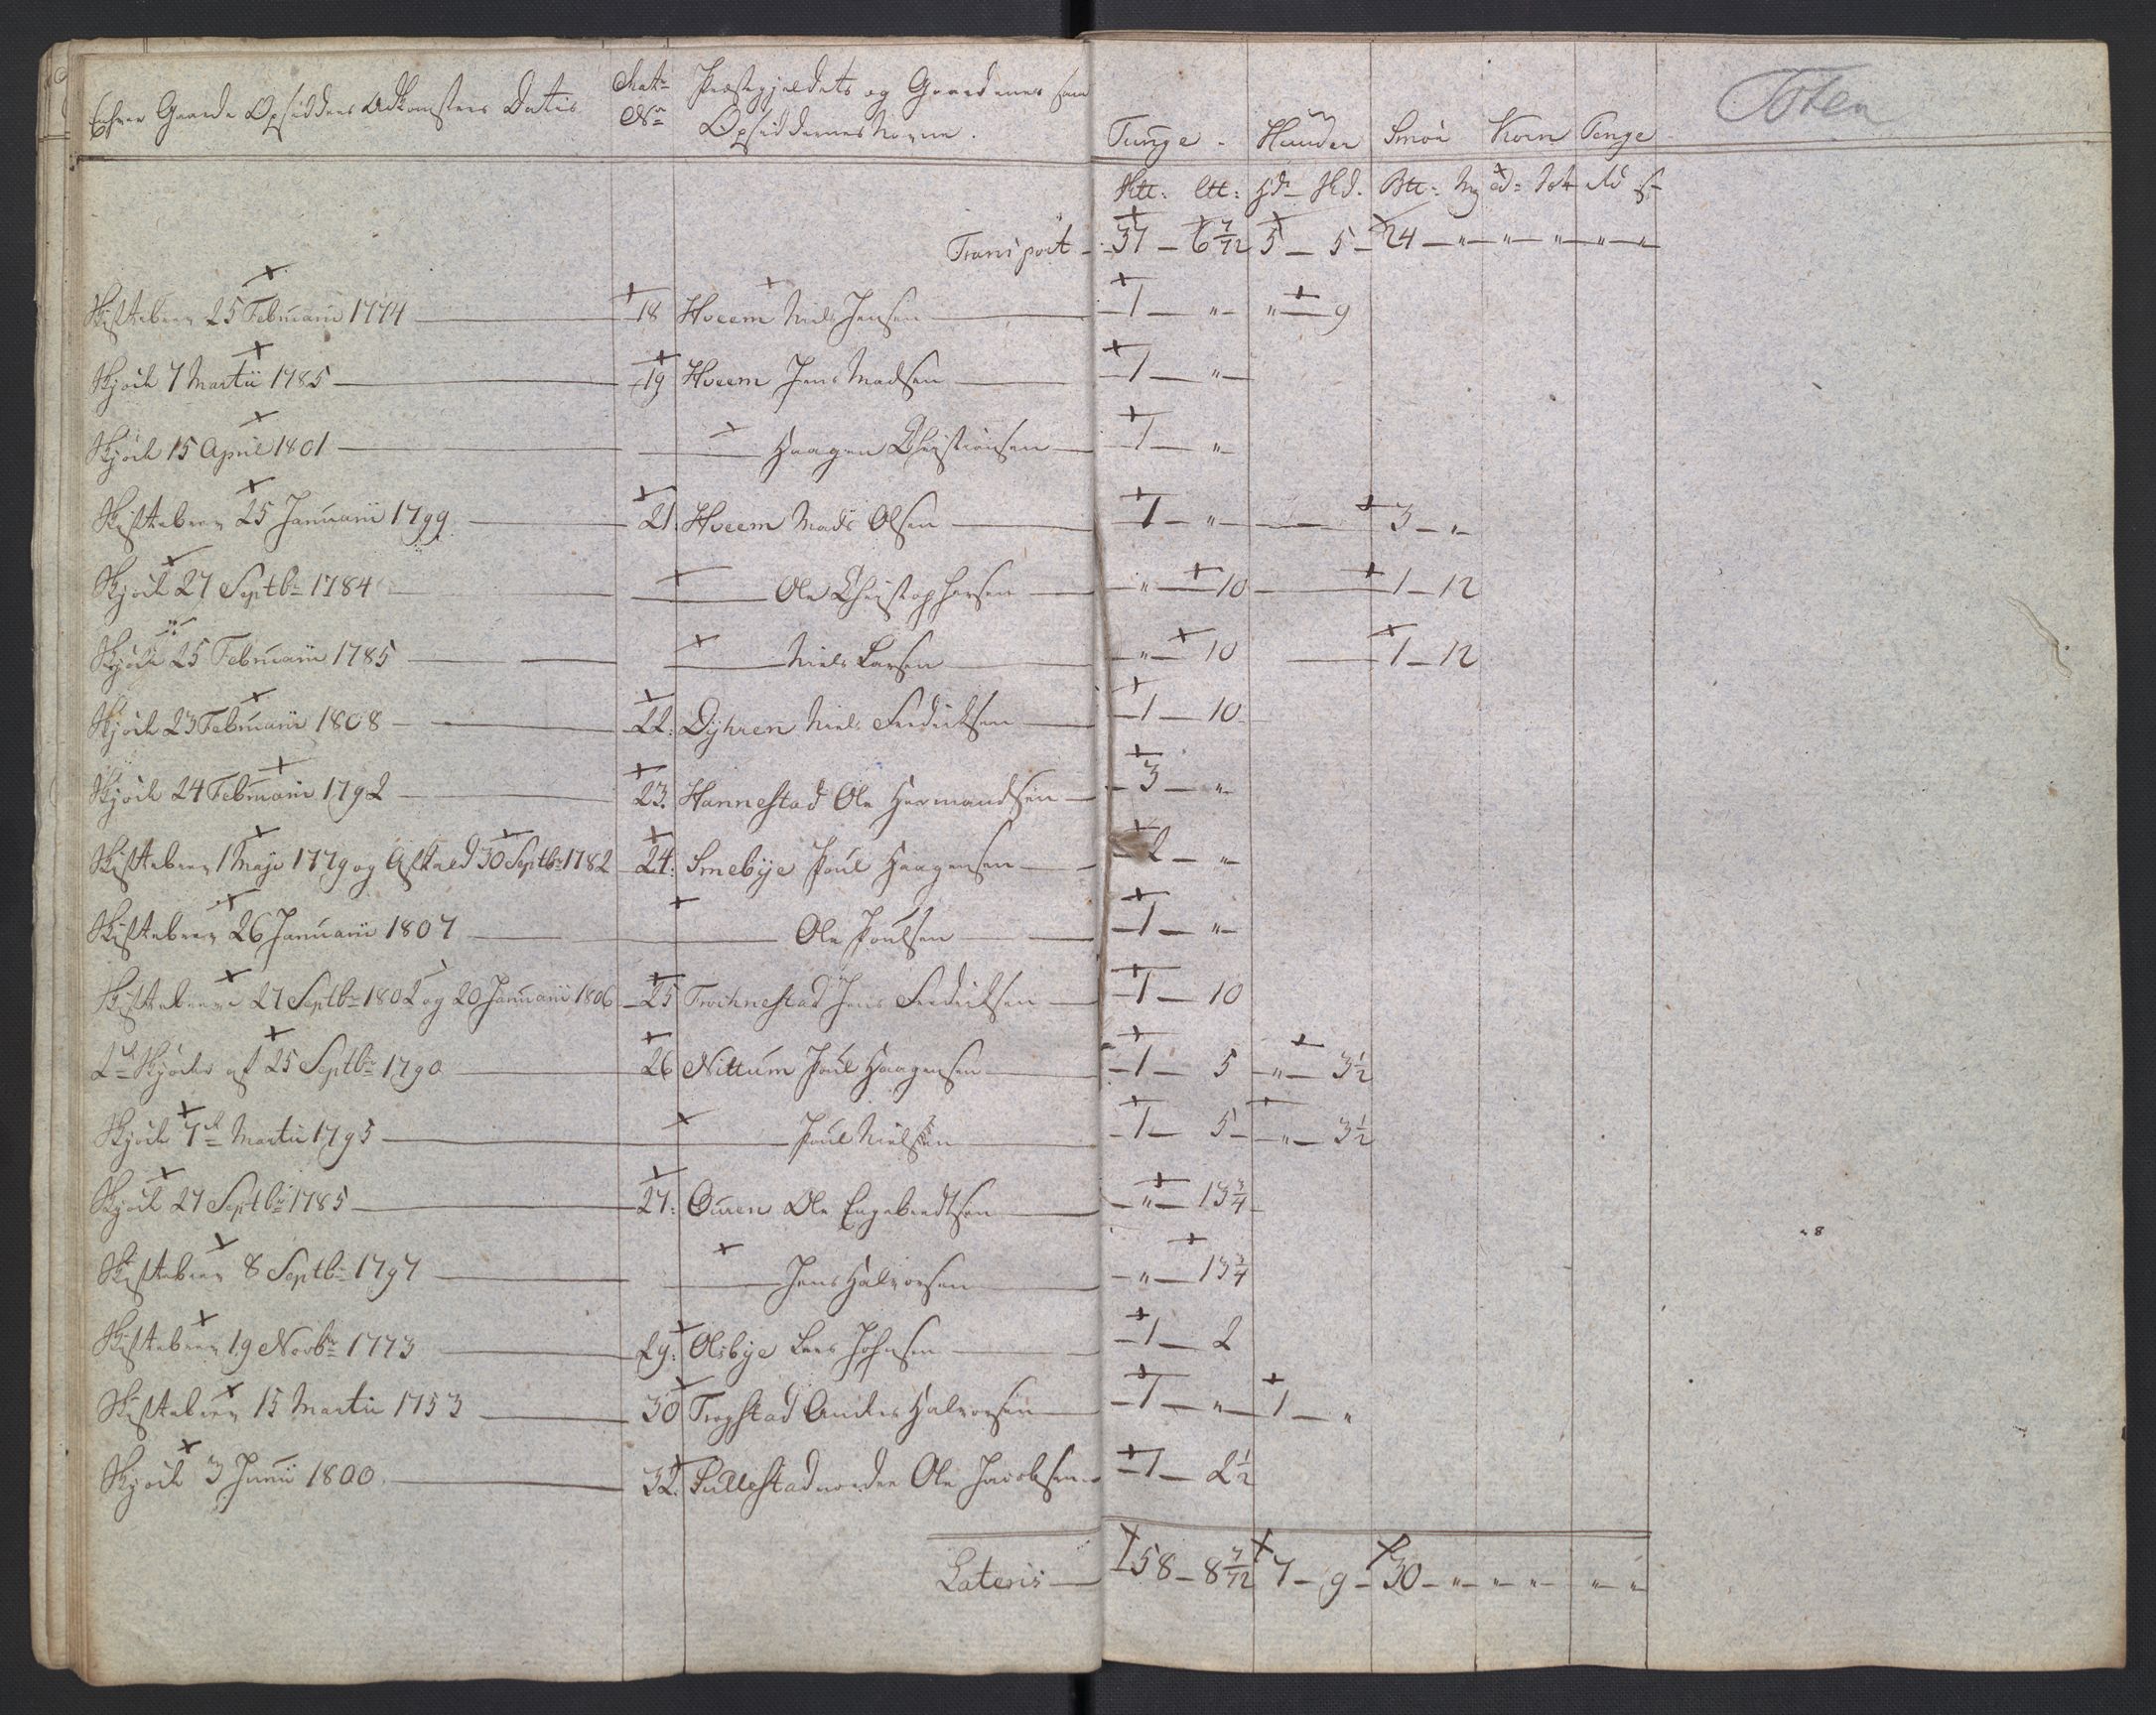 Enhver Gaards Opsidders Adkomsters Datis Mat: No Præstegjeldets og Gaardenes samt
Opsiddernes Navne. Tunge - Huuder Smör Korn Penge
Toten
Transport - 37 - 6 7/12 5 - 5 - 24 - " - " - " - " - "
Skiftebrev 25 Februarii 1774 18 Hveem Niels Jensen 1 - " - " - 9
Skjöde 7 Martii 1785 19 Hveem Jens Madsen 1 - " -
Skjöde 15 April 1801 Haagen Christiansen 1 - "
Skiftebrev 25 Januarii 1799 21. Hveem Mads Olsen 1 - " - 3 - " -
Skjöde 27 Septbr 1784 Ole Christophersen " - 10 - 1 - 12
Skjöde 25 Februarii 1785 Niels Larsen " - 10 1 - 12
Skjöde 23 Februarii 1808 22. Dyhren Niels Fredriksen 1 - 10
Skjöde 24 Februarii 1792 23. Hannestad Ole Hermandsen 3 - "
Skiftebrev 1 Maji 1779 og Afkald 30 Septbr 1782 24. Smebye Poul Haagensen 2 - "
Skiftebrev 26 Januarii 1807 Ole Poulsen 1 - "
Skiftebreve 27 Septbr 1802 og 20 Januarii 1806 25 Trochnestad Jens Fredriksen 1 - 10
2de Skjöder af 25 Septbr 1790 26 Nittum Poul Haagensen 1 - 5 - " - 3 1/2
Skjöde 7de Martii 1795 Poul Nielsen 1 - 5 - " - 3 1/2
Skjöde 27 Septbr 1785 27. Ouren Ole Engebredtsen " - 13 3/4
Skiftebrev 8 Septbr 1797 Jens Halvorsen " - 13 3/4
Skiftebrev 19 Novbr 1773 29. Olsbye Lars Johnsen 1 - 2
Skiftebrev 15 Martii 1753 30 Trogstad Anders Halvorsen 1 - " - 1 - "
Skjöde 3 Junii 1800 32. Sullestad nordre Ole Jacobsen 1 - 2 1/2
Lateris - 58 - 8 7/12 7 - 9 - 30 - " - " - " " - "